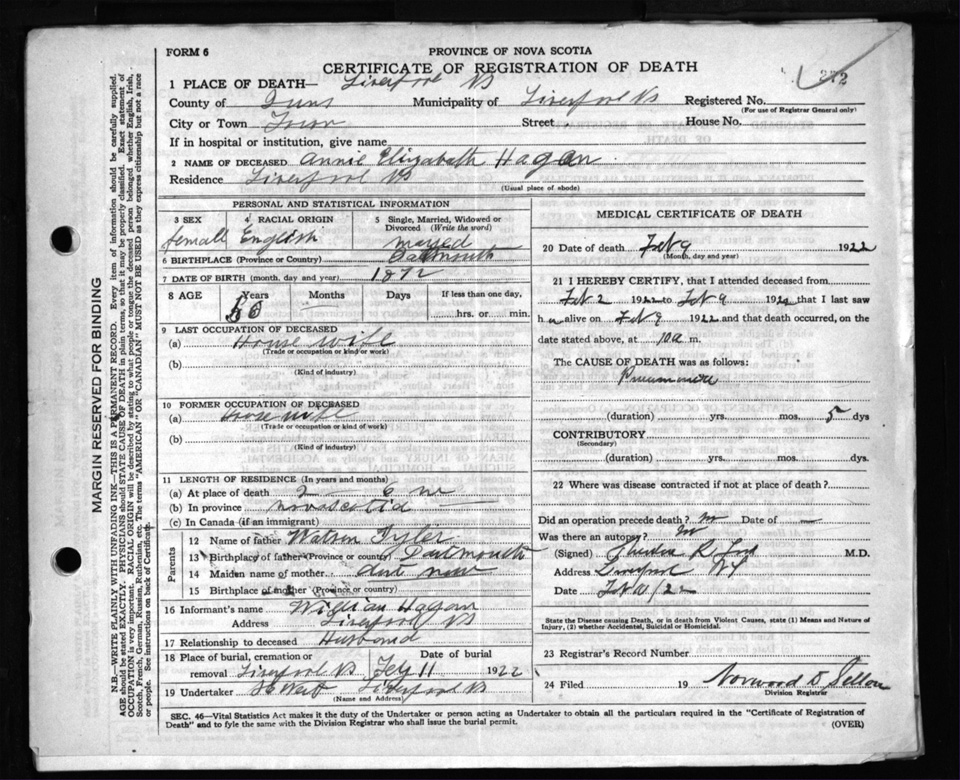 FORM 6
PROVINCE OF NOVA SCOTIA
CERTIFICATE OF REGISTRATION OF DEATH
372
1 PLACE OF DEATH— Liverpool NS
County of Municipality of Liverpool NS Registered No.
(For use of Registrar General only)
City or Town Town Street House No.
If in hospital or institution, give name
2 NAME OF DECEASED Annie Elizabeth Hagan
Residence Liverpool NS
(Usual place of abode)
PERSONAL AND STATISTICAL INFORMATION
3 SEX 4 RACIAL ORIGIN 5 Single, Married, Widowed or Divorced (Write the word)
femall English maried
6 BIRTHPLACE (Province or Country) Dartmouth
7 DATE OF BIRTH (month, day and year) 1872
8 AGE Years Months Days If less than one day,
50 hrs. or min.
9 LAST OCCUPATION OF DECEASED
(a) House wife
(Trade or occupation or kind or work)
(b)
(Kind of industry)
10 FORMER OCCUPATION OF DECEASED
(a) House wife
(Trade or occupation or kind of work)
(b)
(Kind of industry)
11 LENGTH OF RESIDENCE (In years and months)
(a) At place of death 2 — 6 m
(b) In province novascotia
(c) In Canada (if an immigrant)
Parents
12 Name of father Watson
13 Birthplace of father (Province or country) Dartmouth
14 Maiden name of mother dont now
15 Birthplace of mother (Province or country)
16 Informant's name William Hagan
Address Liverpool NS
17 Relationship to deceased Husband
18 Place of burial, cremation or removal Liverpool NS Date of burial Feb 11 1922
19 Undertaker Liverpool NS
(Name and Address)
MEDICAL CERTIFICATE OF DEATH
20 Date of death Feb 9 1922
(Month, day and year)
21 I HEREBY CERTIFY, that I attended deceased from
Feb 2 1922 to Feb 9 1922 that I last saw
h er alive on Feb 9 1922 and that death occurred, on
date stated above, at 10 a m.
The CAUSE OF DEATH was as follows:
Pneumonia
(duration) yrs. mos. 5 dys
CONTRIBUTORY
(Secondary)
(duration) yrs. mos. dys.
22 Where was disease contracted if not at place of death?
Did an operation precede death? no Date of —
Was there an autopsy? no
(Signed) R Ford M.D.
Address Liverpool NS
Date Feb 10/22
State the Disease causing Death, or in death from Violent Causes, state (1) Means and Nature of
Injury, (2) whether Accidental, Suicidal or Homicidal.
23 Registrar's Record Number
24 Filed 19 Norwood D
Division Registrar
SEC. 46—Vital Statistics Act makes it the duty of the Undertaker or person acting as Undertaker to obtain all the particulars required in the "Certificate of Registration of
Death" and to fyle the same with the Division Registrar who shall issue the burial permit.
(OVER)
MARGIN RESERVED FOR BINDING
N.B.—WRITE PLAINLY WITH UNFADING INK—THIS IS A PERMANENT RECORD. Every item of information should be carefully supplied.
AGE should be stated EXACTLY. PHYSICIANS should STATE CAUSE OF DEATH in plain terms, so that it may be properly classified. Exact statement of
OCCUPATION is very important. RACIAL ORIGIN will be described by stating to what people or tongue the deceased person belonged whether English, Irish,
Scotch, French, German, Russian, Ruthenian, etc. The terms "AMERICAN" OR "CANADIAN" MUST NOT BE USED as they express citizenship but not a race
or people. See instructions on back of Certificate.